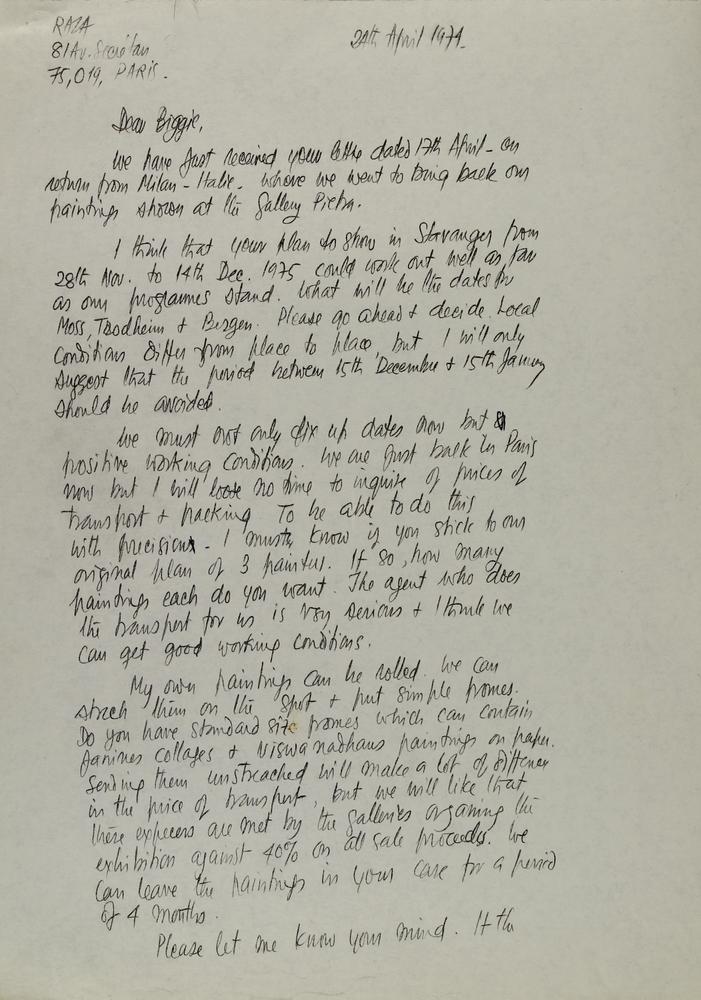 RAZA
81 Av. Secrétan
75,019, PARIS.
24th April 1974.
Dear Biggie,
We have just received your lettre dated 17th April - on
return from Milan - Italie. where we went to bring back our
paintings shown at the Gallery Pietra.
I think that your plan to show in Stavanger from
28th Nov. to 14th Dec. 1975 could work out well as far
as our programmes stand. What will be the dates for
Moss, Trodheim + Bergen. Please go ahead + decide. Local
Conditions differ from place to place, but I will only
suggest that the period between 15th December + 15th January
should be avoided.
We must not only fix up dates now but
positive working conditions. We are just back in Paris
now but I will loose no time to inquire of prices of
transport + packing. To be able to do this
with precision - I must know if you stick to our
original plan of 3 painters. If so, how many
paintings each do you want. The agent who does
the transport for us is very serious + I think we
can get good working conditions.
My own paintings can be rolled. We can
strech them on the spot + put simple frames.
Do you have standard size frames which can contain
Janines collages + Viswanadhans paintings on paper.
Sending them unstreached will make a lot of differner
in the price of transport, but we will like that
these expecers are met by the galleries organing the
exhibition against 40% on all sale proceeds. We
can leave the paintings in your care for a period
of 4 months.
Please let me know your mind. If the